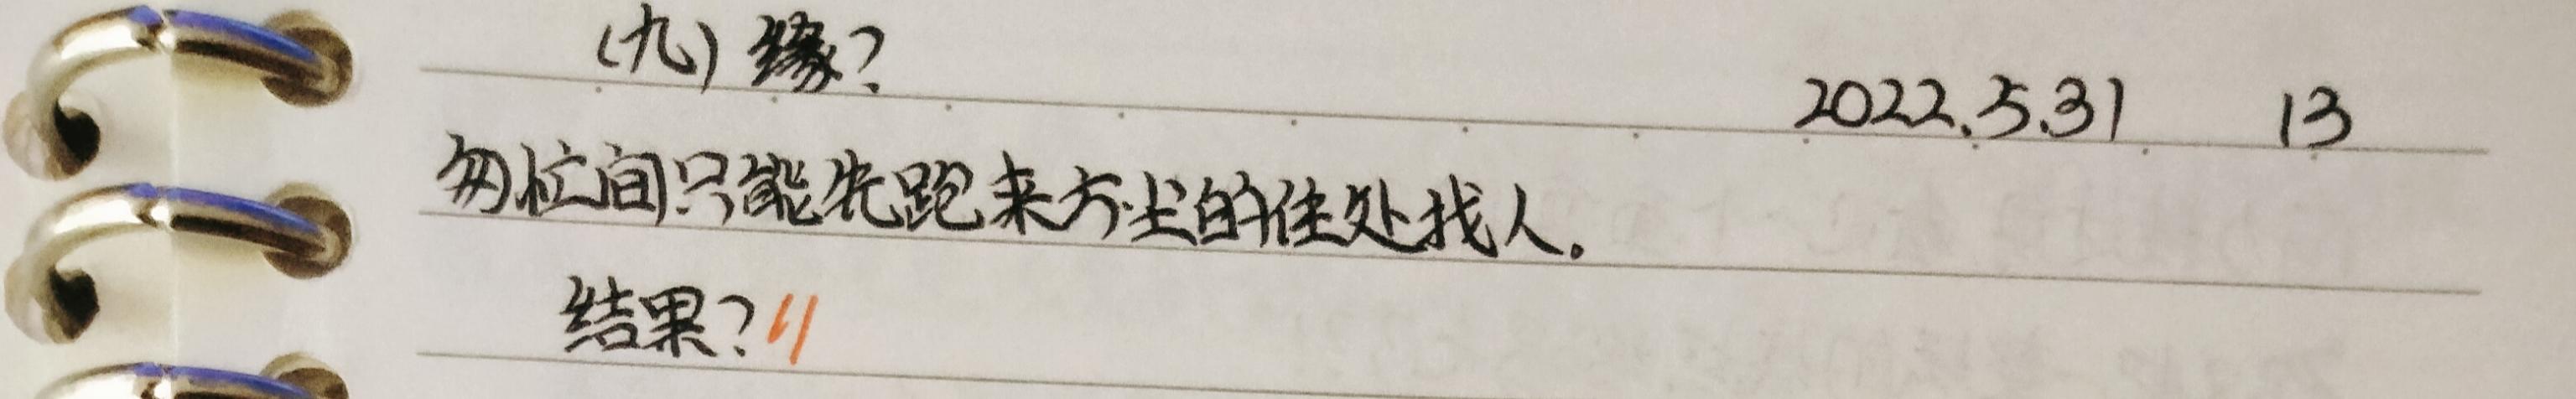 (九) 缘?
2022.5.31 13
匆忙间只能先跑来方尘的住处找人。
结果?